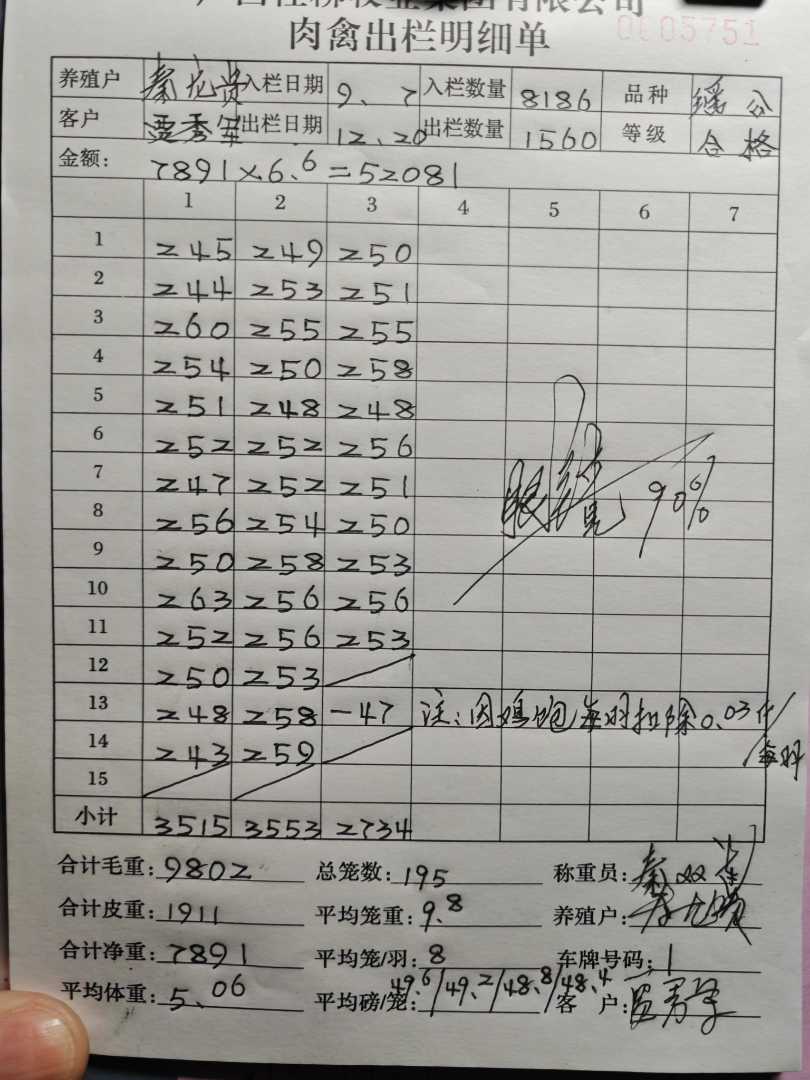 牧业集团有限公司
肉禽出栏明细单
0005751
养殖户 秦 入栏日期 9、7 入栏数量 8186 品种 瑶公
客户 出栏日期 12、20 出栏数量 1560 等级 合格
金额: 7891×6、6=52081
1 2 3 4 5 6 7
1 245 249 250
2 244 253 251
3 260 255 255
4 254 250 258
5 251 248 248
6 252 252 256
7 247 252 251
8 256 254 250
9 250 258 253
10 263 256 256
11 252 256 253
12 250 253
13 248 258 -47 注:因鸡饱每羽扣除0.03
14 243 259 每羽
15
小计 3515 3553 2734
90%
合计毛重: 9802 总笼数: 195 称重员: 秦
合计皮重: 1911 平均笼重: 9.8 养殖户:
合计净重: 7891 平均笼/羽: 8 车牌号码: 1
平均体重: 5、06 平均磅/笼: 49.6/49.2/48.8/48.4 客 户: